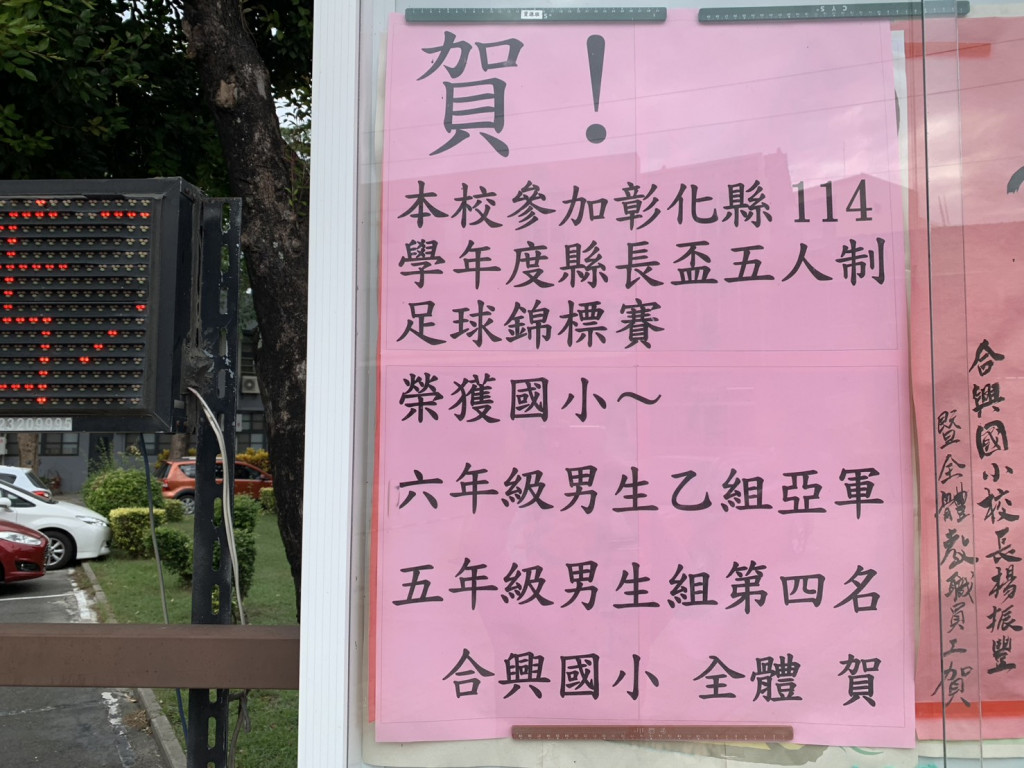 賀！
本校參加彰化縣114
學年度縣長盃五人制
足球錦標賽
榮獲國小～
六年級男生乙組亞軍
五年級男生組第四名
合興國小 全體 賀
合興國小校長楊振豐
暨全體教職員工賀
23209995